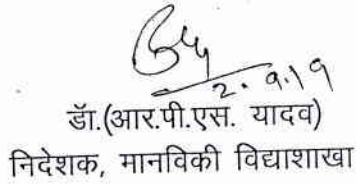 2.9.19
डॉ.(आर.पी.एस. यादव)
निदेशक, मानविकी विद्याशाखा